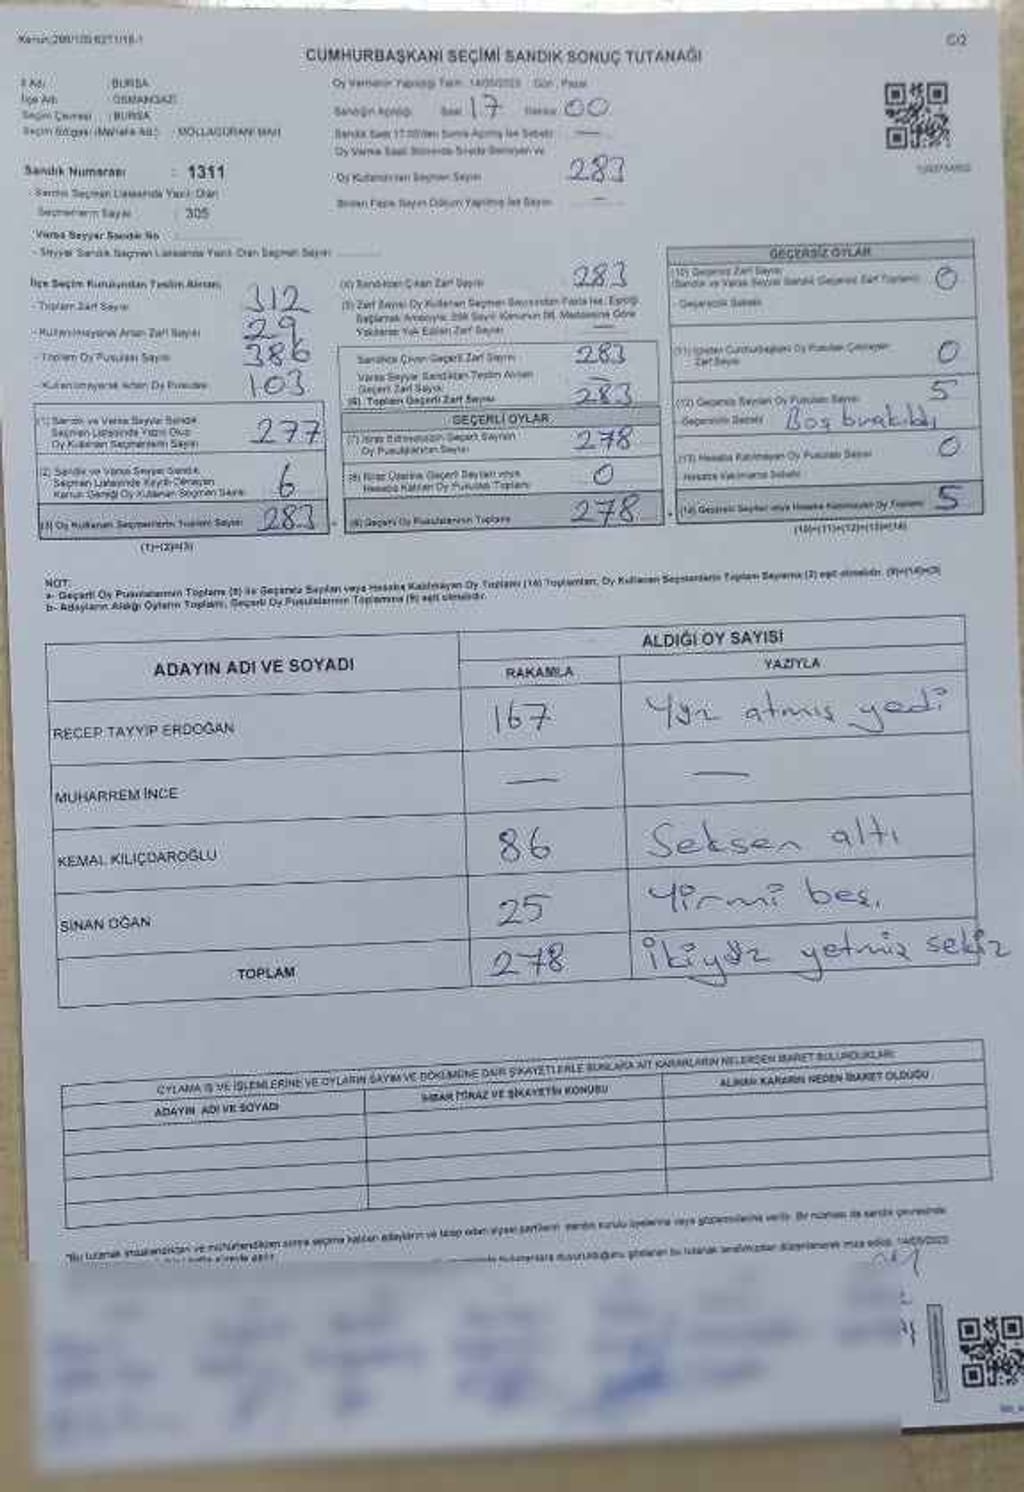 C/2
CUMHURBAŞKANI SEÇİMİ SANDIK SONUÇ TUTANAĞI
İl Adı : BURSA
İlçe Adı : OSMANGAZİ
Seçim Çevresi : BURSA
Seçim Bölgesi (Mahalle Adı) : MOLLAGÜRANİ MAH
Sandık Numarası : 1311
- Sandık Seçmen Listesinde Yazılı Olan
Seçmenlerin Sayısı : 305
Varsa Seyyar Sandık No
- Seyyar Sandık Seçmen Listesinde Yazılı Olan Seçmen Sayısı
Oy Vermenin Yapıldığı Tarih : 14/05/2023 Gün : Pazar
Sandığın Açıldığı Saat 17 Dakika 00
Sandık Saat 17:00'den Sonra Açılmış İse Sebebi —
Oy Kullanan Seçmen Sayısı 283
Birden Fazla Sayım Döküm Yapılmış İse Sayısı —
İlçe Seçim Kurulundan Teslim Alınan
- Toplam Zarf Sayısı 312
- Kullanılmayarak Artan Zarf Sayısı 29
- Toplam Oy Pusulası Sayısı 386
- Kullanılmayarak Artan Oy Pusulası 103
(1) Sandık ve Varsa Seyyar Sandık
Seçmen Listesinde Yazılı Olup
Oy Kullanan Seçmenlerin Sayısı 277
(2) Sandık ve Varsa Seyyar Sandık
Seçmen Listesinde Kayıtlı Olmayan
Kanun Gereği Oy Kullanan Seçmen Sayısı 6
(3) Oy Kullanan Seçmenlerin Toplam Sayısı 283
(1)+(2)=(3)
(4) Sandıktan Çıkan Zarf Sayısı 283
(5) Zarf Sayısı Oy Kullanan Seçmen Sayısından Fazla İse, Eşitliği
Sağlamak Amacıyla 298 Sayılı Kanunun 98. Maddesine Göre
Yakılarak Yok Edilen Zarf Sayısı —
Sandıktan Çıkan Geçerli Zarf Sayısı 283
Varsa Seyyar Sandıktan Teslim Alınan
Geçerli Zarf Sayısı —
(6) Toplam Geçerli Zarf Sayısı 283
GEÇERLİ OYLAR
(7) İtiraz Edilmeksizin Geçerli Sayılan
Oy Pusulalarının Sayısı 278
(8) İtiraz Üzerine Geçerli Sayılan veya
Hesaba Katılan Oy Pusulası Toplamı 0
(9) Geçerli Oy Pusulalarının Toplamı 278
GEÇERSİZ OYLAR
(10) Geçersiz Zarf Sayısı
(Sandık ve Varsa Seyyar Sandık Geçersiz Zarf Toplamı) 0
- Geçersizlik Sebebi
(11) İçinden Cumhurbaşkanı Oy Pusulası Çıkmayan
Zarf Sayısı 0
(12) Geçersiz Sayılan Oy Pusulası Sayısı 5
Geçersizlik Sebebi Boş bırakıldı
(13) Hesaba Katılmayan Oy Pusulası Sayısı 0
Hesaba Katılmama Sebebi
(14) Geçersiz Sayılan veya Hesaba Katılmayan Oy Toplamı 5
(10)+(11)+(12)+(13)=(14)
NOT:
a- Geçerli Oy Pusulalarının Toplamı (9) ile Geçersiz Sayılan veya Hesaba Katılmayan Oy Toplamı (14) Toplamları, Oy Kullanan Seçmenlerin Toplam Sayısına (3) eşit olmalıdır. (9)+(14)=(3)
b- Adayların Aldığı Oyların Toplamı, Geçerli Oy Pusulalarının Toplamına (9) eşit olmalıdır.
ADAYIN ADI VE SOYADI
ALDIĞI OY SAYISI
RAKAMLA YAZIYLA
RECEP TAYYİP ERDOĞAN 167 Yüz atmış yedi
MUHARREM İNCE — —
KEMAL KILIÇDAROĞLU 86 Seksen altı
SİNAN OĞAN 25 Yirmi beş.
TOPLAM 278 İkiyüz yetmiş sekiz
OYLAMA İŞ VE İŞLEMLERİNE VE OYLARIN SAYIM VE DÖKÜMÜNE DAİR ŞİKAYETLERLE BUNLARA AİT KARARLARIN NELERDEN İBARET BULUNDUKLARI
ADAYIN ADI VE SOYADI
İHBAR İTİRAZ VE ŞİKAYETİN KONUSU
ALINAN KARARIN NEDEN İBARET OLDUĞU